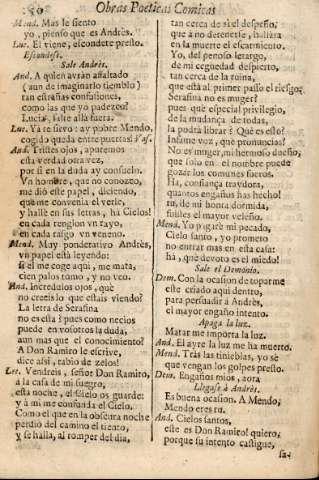 80 Obras Poeticas Comicas
Mend. Mas le siento
yo, pienso que es Andrès.
Luc. El viene, escondete presto.
Escondese.
Sale Andrès.
And. A quien avràn assaltado
(aun de imaginarlo tiemblo)
tan estrañas confusiones,
como las que yo padezco?
Lucia, salte allà fuera.
Luc. Ya te sirvo: ay pobre Mendo,
cogido queda entre puertas! Vas.
And. Tristes ojos, apuremos
esta verdad otra vez,
por si en la duda ay consuelo.
Vn hombre, que no conozco,
me diò este papel, diciendo,
que me convenia el verle,
y hallè en sus letras, hà Cielos!
en cada renglon vn rayo,
en cada rasgo vn veneno.
Mend. Muy ponderativo Andrès,
vn papel està leyendo:
si el me coge aqui, me mata,
cien palos tomo, y no veo.
And. Incredulos ojos, què
no creeis lo que estais viendo?
La letra de Serafina
no es esta? pues como necios
puede en vosotros la duda,
aun mas que el conocimiento?
A Don Ramiro le escrive,
dice asi, rabio de zelos!
Lee. Vendreis, señor Don Ramiro,
à la casa de mi suegro,
esta noche, el Cielo os guarde:
y à mi me confunda el Cielo.
Como el que en la obscura noche
perdiò del camino el tiento,
y se halla, al romper del dia,
tan cerca de sì el despeño,
que à no detenerle, hallàra
en la muerte el escarmiento.
Yo, del penoso letargo,
de mi ceguedad despierto,
tan cerca de la ruina,
que està al primer passo el riesgo.
Serafina no es muger?
pues què especial privilegio,
de la mudança de todas,
la podrà librar? Què es esto?
Infame voz, què pronuncias?
No es muger, mi hermoso dueño,
que solo en el nombre puede
gozar los comunes fueros.
Hà, confiança traydora,
quantos engaños has hecho!
tu, de mi honra dormida,
fuistes el mayor veleño.
Mend. Yo pagarè mi pecado,
Cielo santo, yo prometo
no entrar mas en esta casa:
hà, que devoto es el miedo!
Sale el Demonio.
Dem. Con la ocasion de toparme
este criado aqui dentro,
para persuadir à Andrès,
el mayor engaño intento.
Apaga la luz.
Matar me importa la luz.
And. El ayre la luz me ha muerto.
Mend. Tràs las tinieblas, yo sè
que vengan los golpes presto.
Dem. Engaños mios, aora
Llegase à Andrès.
Es buena ocasion. A Mendo,
Mendo eres tu.
And. Cielos santos,
este es Don Ramiro! quiero,
porque su intento castigue,